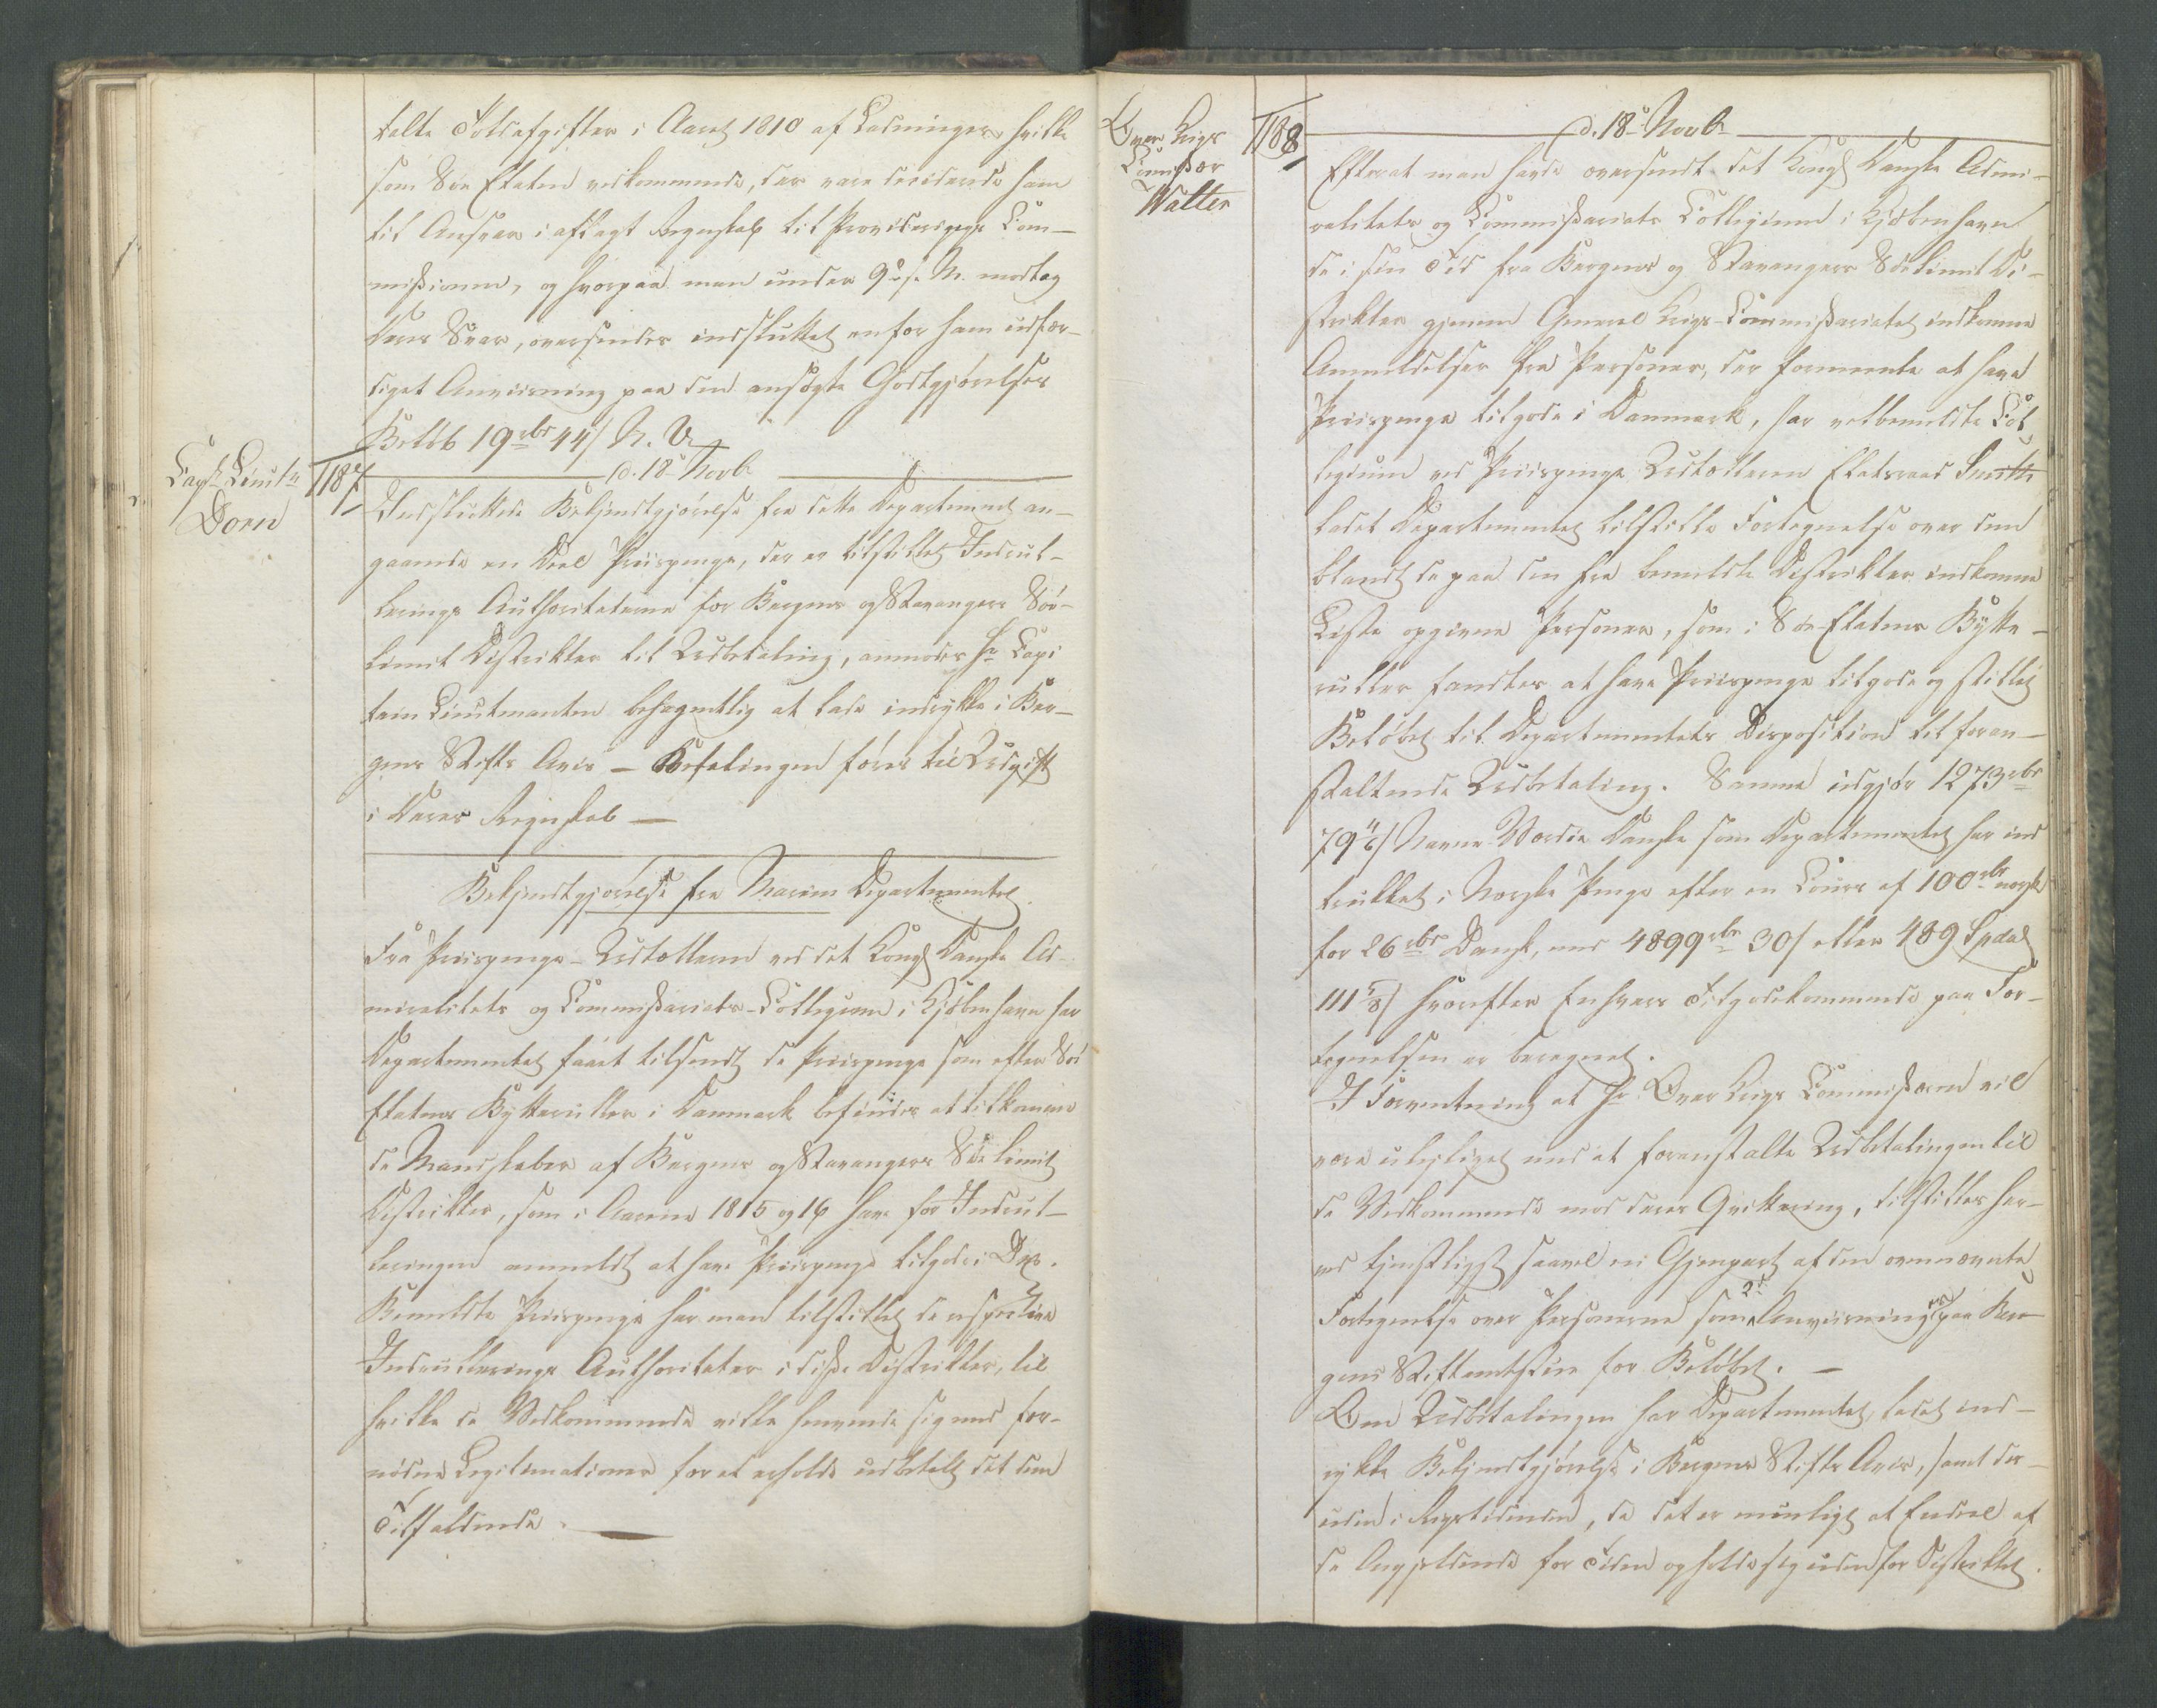 talte Toldafgifter i Aaret 1810 af Ladninger, hvilke
som Søe Etaten vedkommende, der vare deciderede ham
til Ansvar i aflagt Regnskab til Provideringgs Com-
missionen, og hvorpaa man under 9de f. M. modtog
Deres Svar, oversendes indsluttet en for ham udfær-
diget Anviisning paa den ansøgte Godtgjørelses
Beløb 19 rbd 44 s N. V.
Capt. Lieutn
Dorn
1187
d. 18de Novbr
Indsluttede Bekjendtgjørelse fra dette Departement an-
gaaende en Deel Priispenge, der er tilstillet Indrul-
lerings Authoriteterne for Bergens og Stavangers Søe-
limit Distrikter til Udbetaling, anmodes Hr Capi
tain Lieutenanten behageligtlig at lade indrykke i Ber-
gens Stifts Avis - Betalingen føres til Udgift
i Deres Regnskab -
Bekjendtgjørelse fra Marine Departementet.
Fra Priispenge-Uddelleren ved det Kongl Danske Ad-
miralitets og Commissariats-Collegium i Kjøbenhavn har
Departementet faaet tilsendt de Priispenge som efter Søe
Etatens Bytteruller i Danmark befindes at tilkomme
de Mandskaber af Bergens og Stavangers Søe limit
Distrikter, som i Aarene 1815 og 16 have for Indrul-
leringen anmeldt at have Priispenge tilgode i Dk.
Bemeldte Priispenge har man tilstillet de respective
Indrullerings Authoriteter i disse Distrikter, til
hvilke de Vedkommende ville henvende sig med for-
nødne Legitimationer for at erholde udbetalt det dem
Tilfaldende.
Over Krigs
Commissær
Walter
1188
d. 18de Novbr
Efterat man havde oversendt det Kongl Danske Admi-
ralitets og Commissariats Collegium i Kjøbenhavn
de i sin Tid fra Bergens og Stavangers Søelimit Di-
strikter gjennem General Krigs-Commissariatet indkomne
Anmeldelser fra Personer, der formeente at have
Priispenge tilgode i Danmark, har velbemeldte Col
legium ved Priispenge Uddelleren Etatsraad Smith
ladet Departementet tilstille Fortegnelse over dem
blandt de paa den fra bemeldte Distrikter indkomne
Liste opgivne Personer, som i Søe-Etatens Bytte-
ruller fandtes at have Priispenge tilgode og stillet
Beløbet til Departementets Disposition til foran-
staltende Udbetaling. Samme udgjør 1273 rbd
79 4/6 s Navne Værdie Danske som Departementet har ind
trukket i Norske Penge efter en Cours af 100 rbd norsk
for 26 rbd Dansk, med 4899 rbd 30 s eller 489 Spdal
111 5/8 s hvorefter Enhvers Tilgodekommende paa For-
tegnelsen er beregnet.
I Forventning at Hr Over Krigs Commissæren vil
være uleiliget med at foranstalte Udbetalingen til
de Vedkommende mod deres Qvittering, tilstilles her-
ved tjenstligst saavel en Gjenpart af den ovennævnte
Fortegnelse over Personerne som 2de Anviisninger paa Ber-
gens Stiftamtstue for Beløbet. -
Om Udbetalingen har Departementet ladet ind-
rykke Bekjendtgjørelse i Bergens Stifts Avis, samt des-
uden i Rigstidenden, da det er muligt at Endeel af
de Angjeldende for Tiden opholde sig udenfor Distriktet.